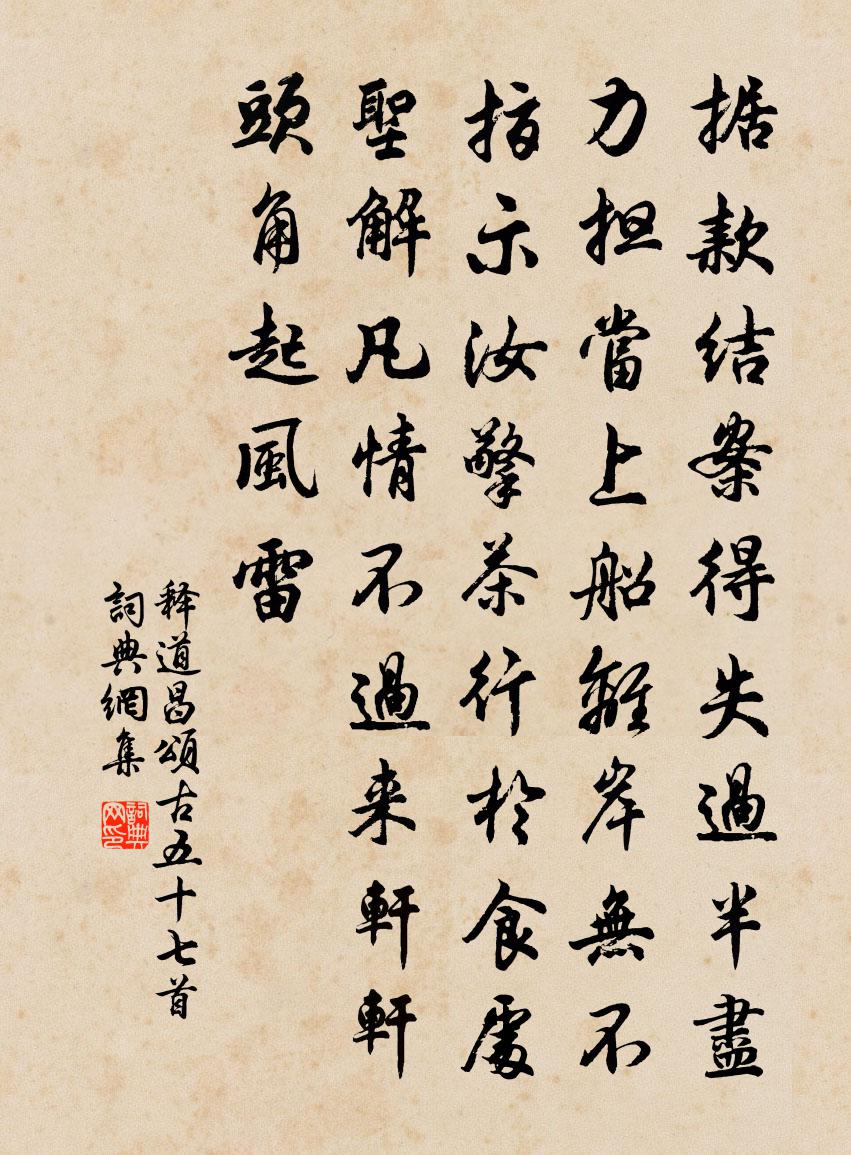 据款结案得失過半盡
力担當上船離岸無不
指示汝擎茶行於食處
聖解凡情不過来軒軒
頭角起風雷
释道昌頌古五十七首
詞典網集
詞典网印